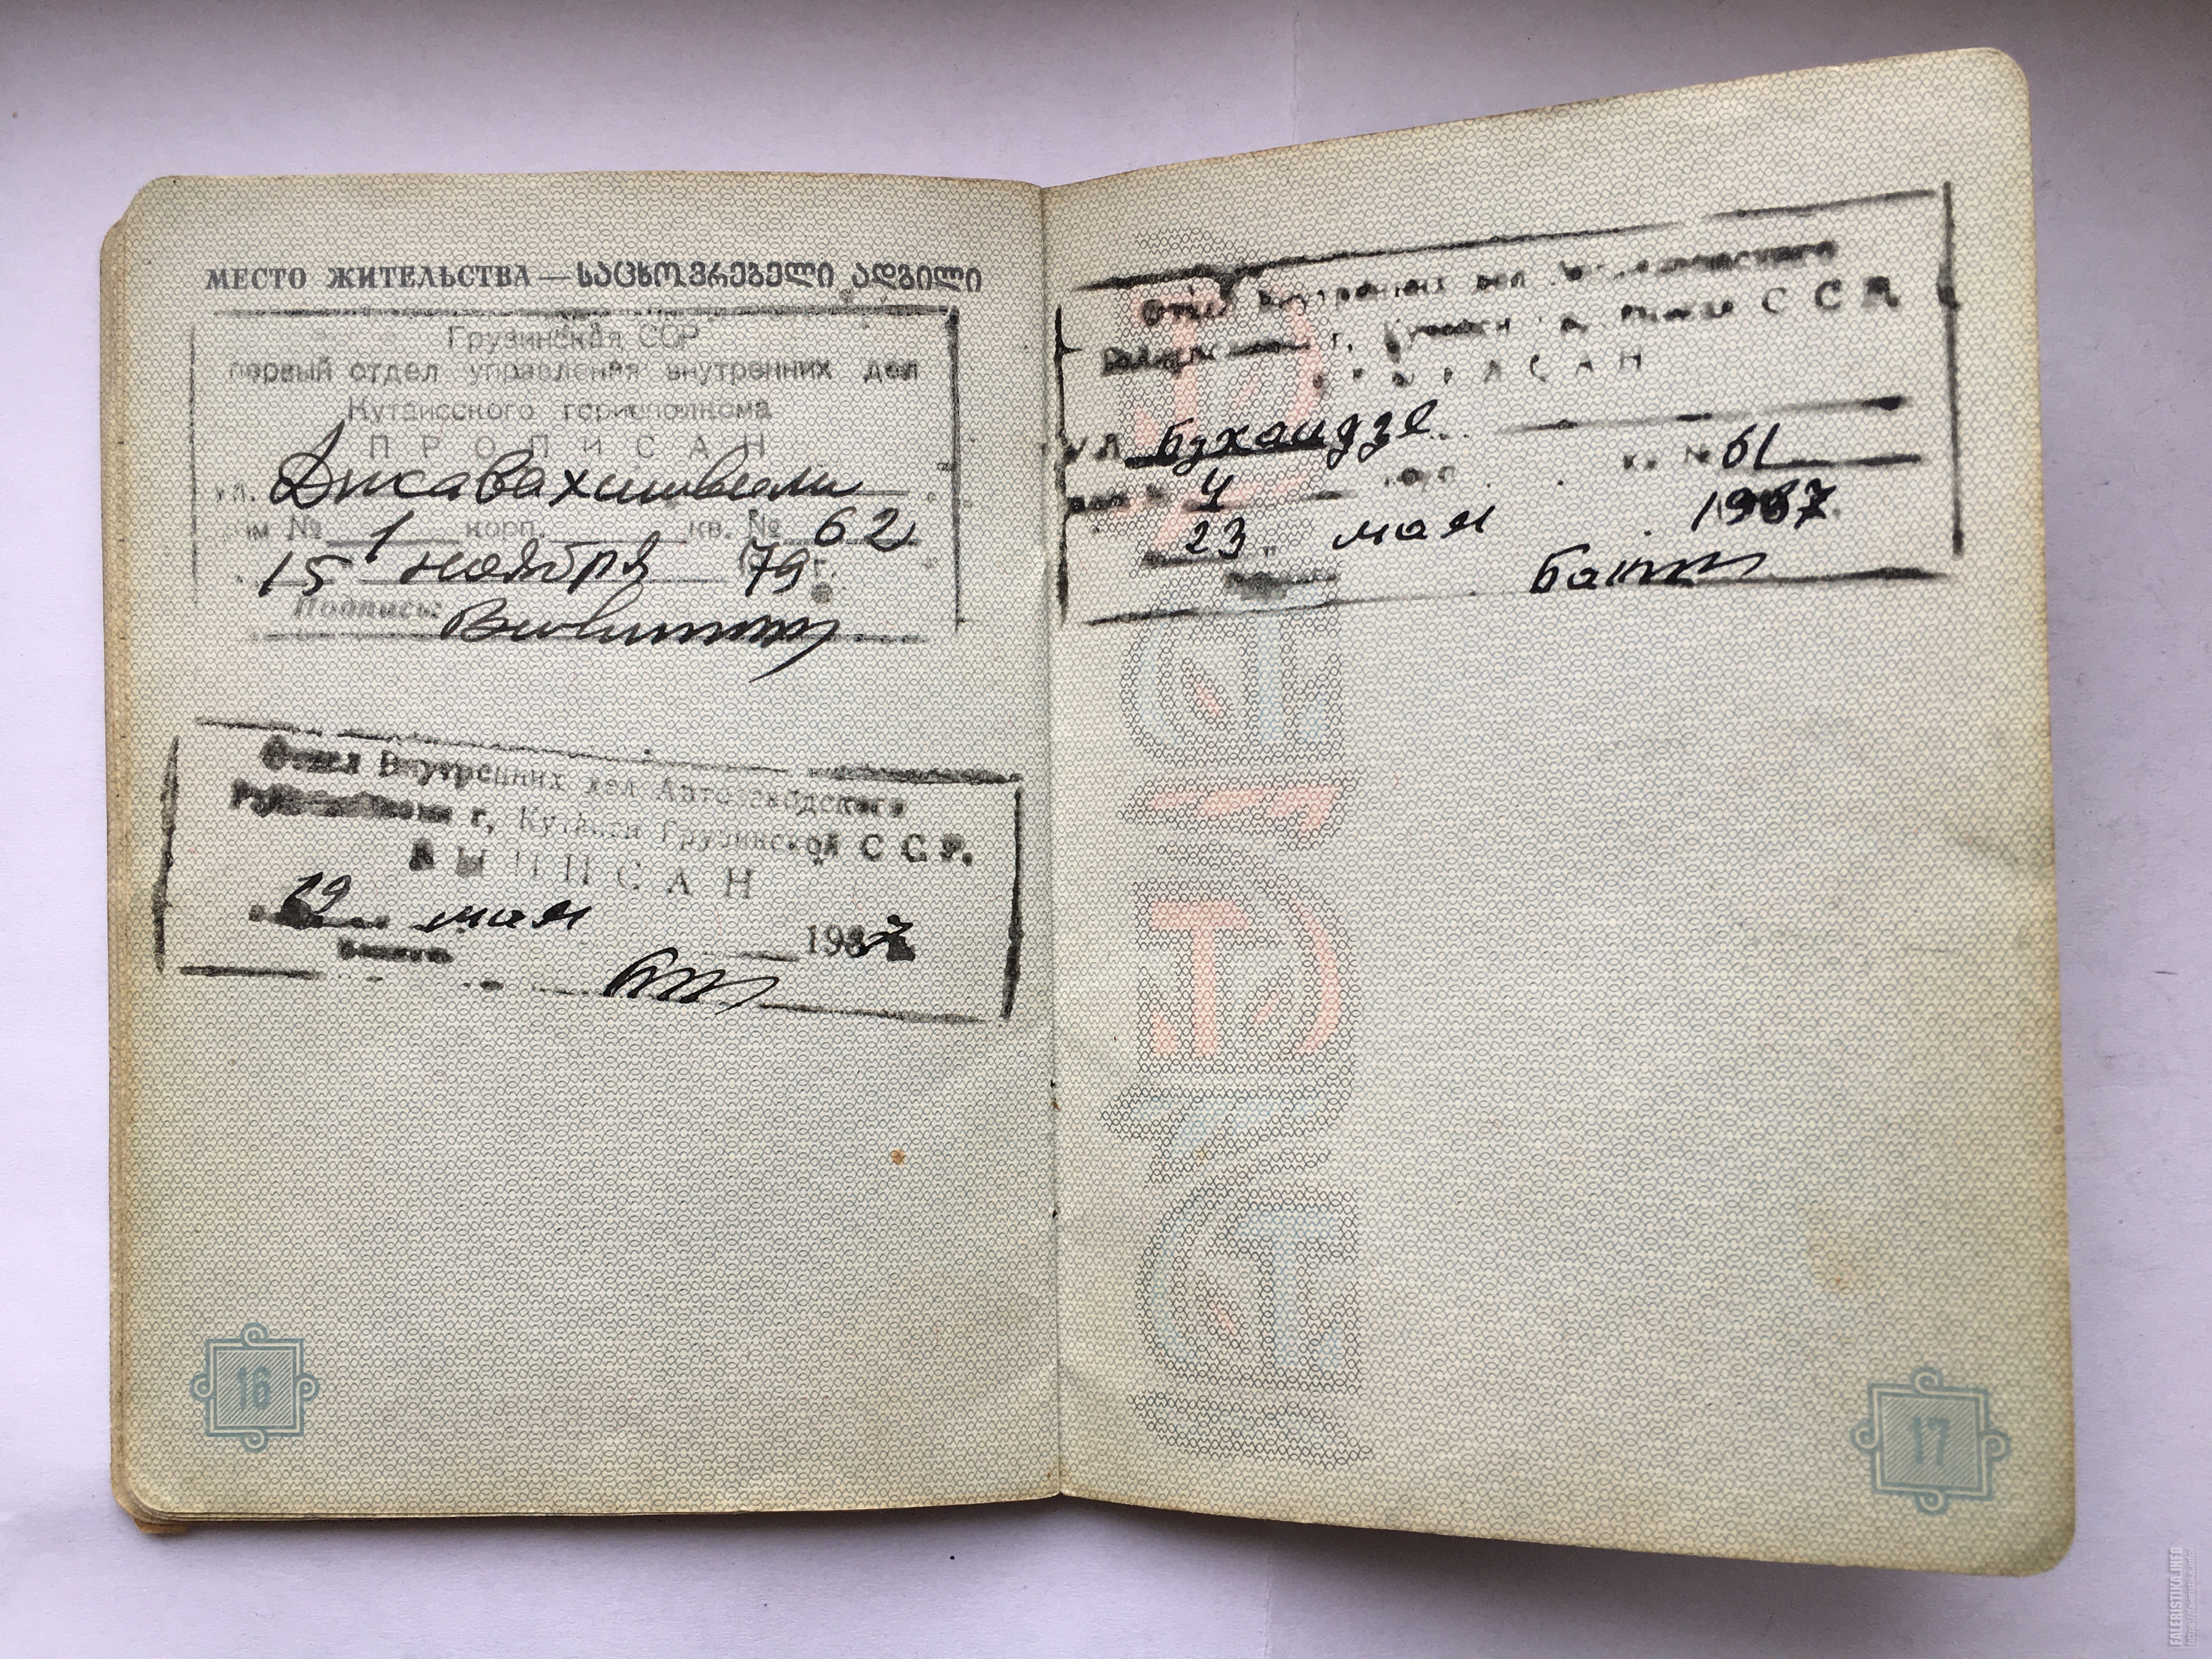 МЕСТО ЖИТЕЛЬСТВА — ᲡᲐᲪᲮᲝᲕᲠᲔᲑᲔᲚᲘ ᲐᲓᲒᲘᲚᲘ
Грузинская ССР
первый отдел управления внутренних дел
Кутаисского горисполкома
ПРОПИСАН
ул. Джавахишвили
дом № 1 корп. кв. № 62
15 ноября 1979 г.
Подпись:
Отдел Внутренних дел Автозаводского
г. Кутаиси Грузинской С С Р.
ВЫПИСАН
19 мая 1987
16
Отдел Внутренних дел
г. С С Р
ПРОПИСАН
ул. Бухаидзе
дом № 4 кв. № 61
23 мая 1987
17
FALERISTIKA.INFO
https://faleristika.info/